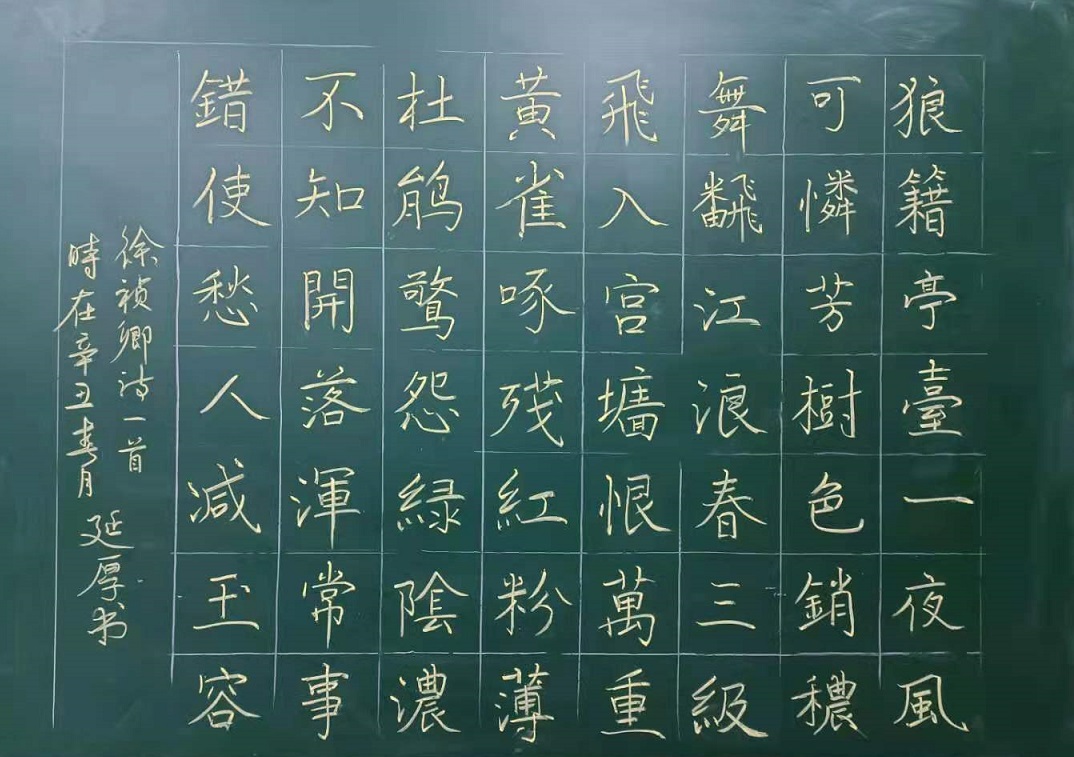 狼籍亭臺一夜風
可憐芳樹色銷穠
舞飜江浪春三級
飛入宮墻恨萬重
黃雀啄殘紅粉薄
杜鵑驚怨綠陰濃
不知開落渾常事
錯使愁人减玉容
徐禎卿诗一首
時在辛丑春月 延厚书